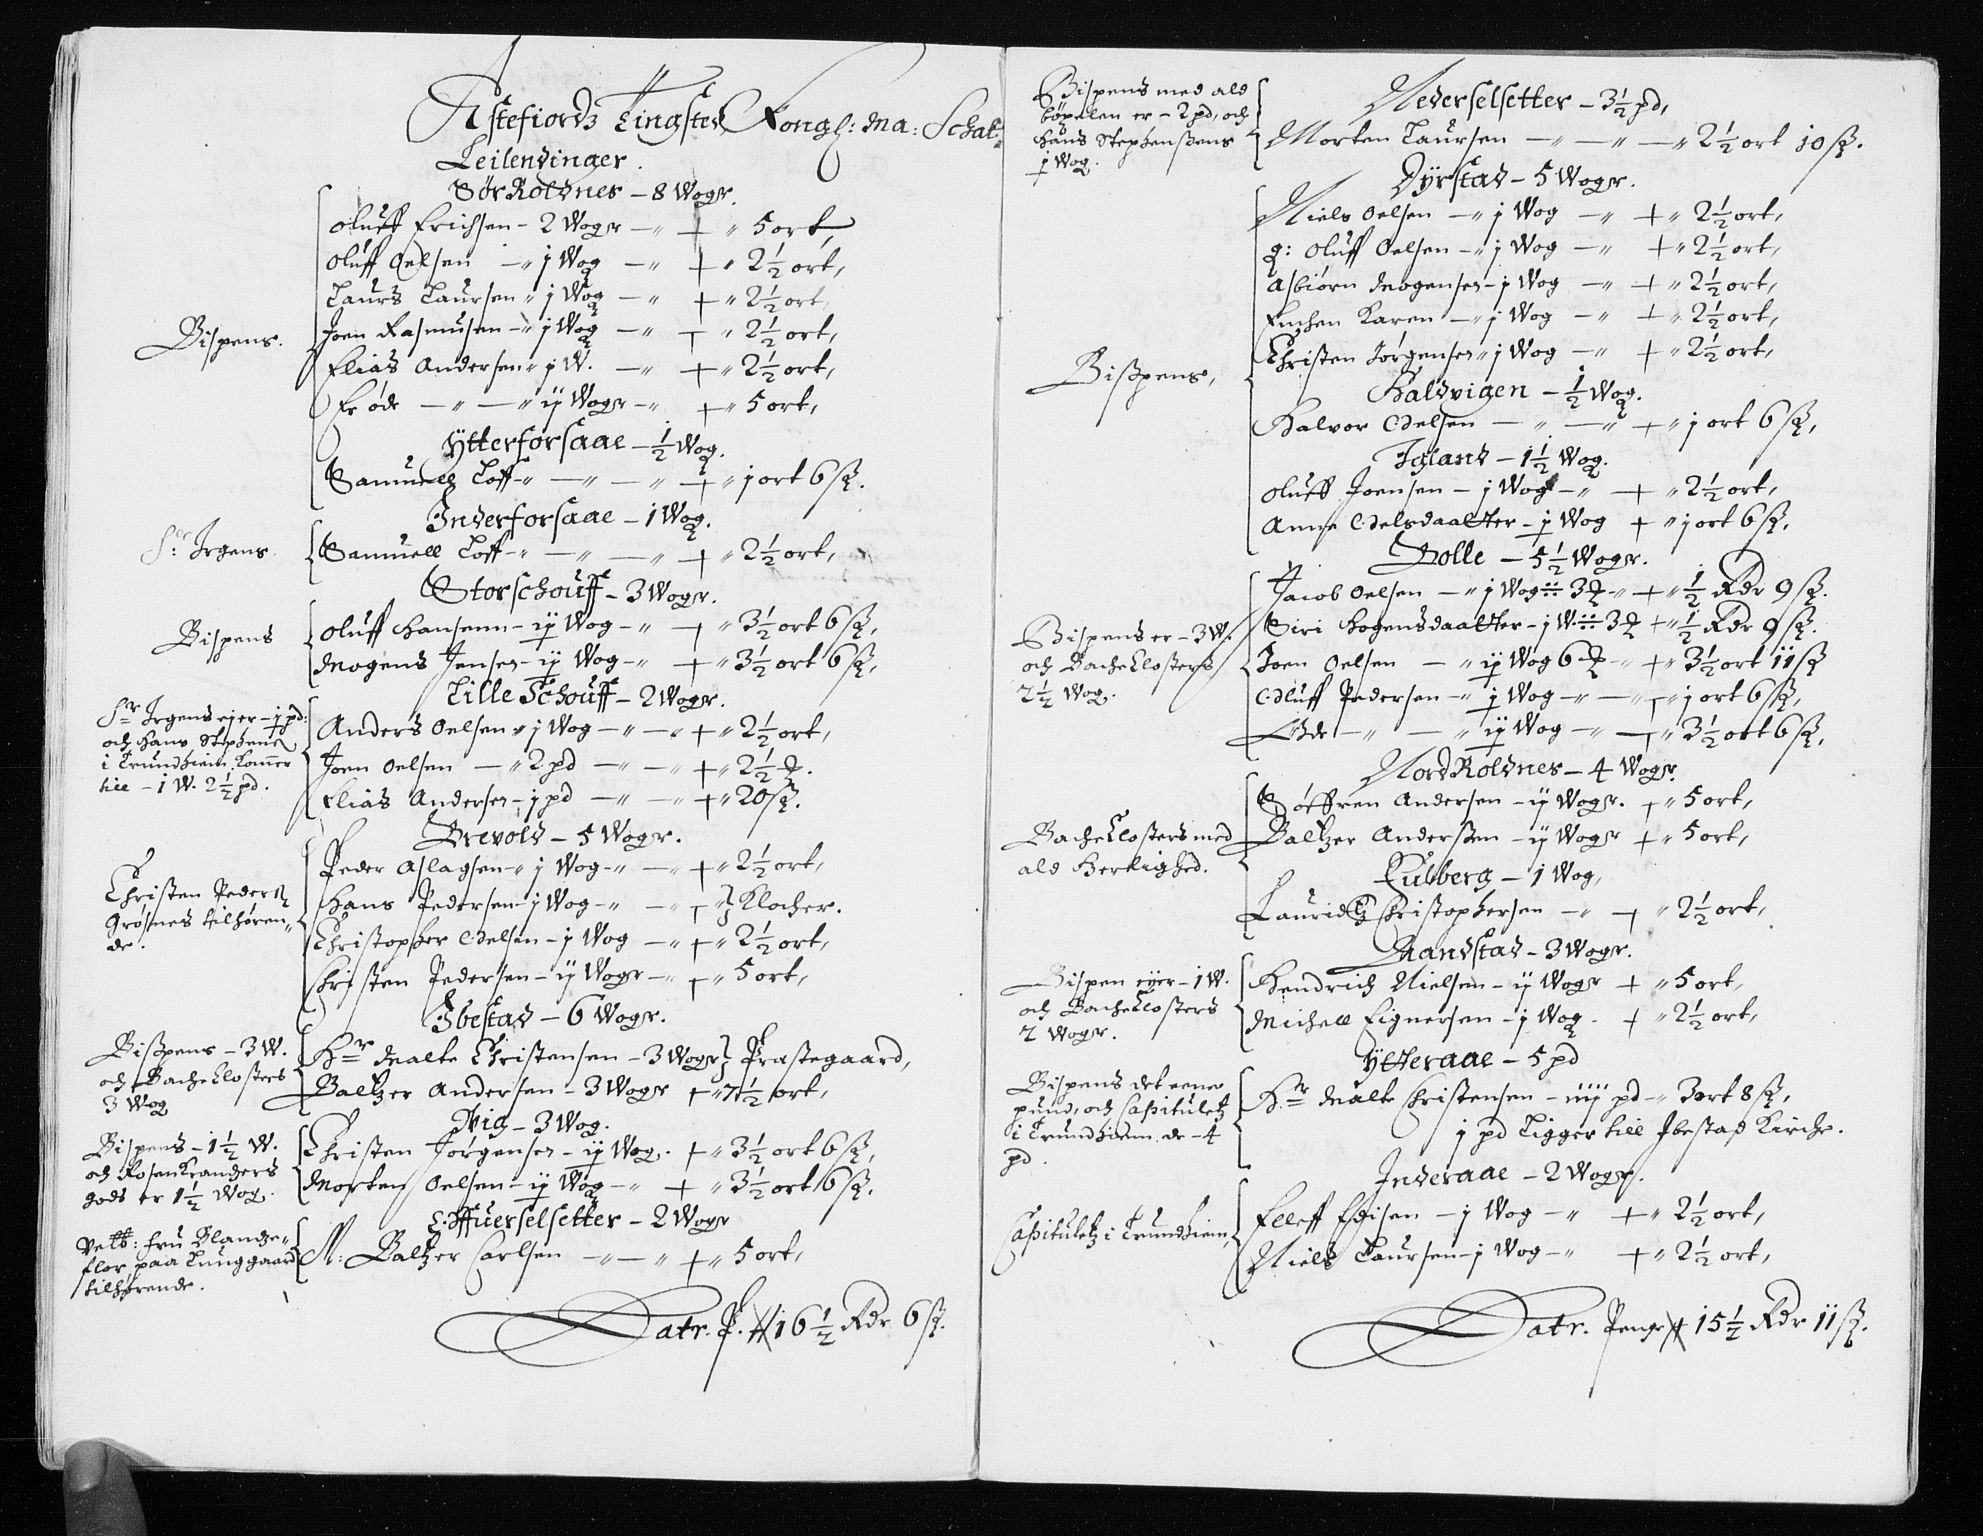 Astefiords Tingsted Kongl: Ma: Schat:
Leilendinger.
Sør Roldnes - 8 Wogr.
Bispens.
Oluff Erichsen - 2 Wogr - " + " 5 ort,
Oluff Oelsen - " j Wog - " + " 2½ ort,
Laurs Laursen " j Wog - " + " 2½ ort,
Joen Rasmusen - " j Wog - " + " 2½ ort,
Elias Andersen " j W. - " + " 2½ ort,
Er øde - " - " ij Wogr - " + " 5 ort,
Ytterforsaae - ½ Wog.
Samuell Toff - " - " - " + " j ort 6 ß.
Inderforsaae - 1 Wog.
Sr. Irgens.
Samuell Toff - " - " - " + " 2½ ort,
Storschouff - 3 Wogr.
Bispens
Oluff Hansenn - ij Wog - " + " 3½ ort 6 ß,
Mogens Jensen - ij Wog - " + " 3½ ort 6 ß,
Lille Schouff - 2 Wogr.
Sr Irgens eier - j pd:
och Hans Stephens
i Trundhiem Kommer
till - 1 W. 2½ pd.
Anders Oelsen " j Wog - " - " + " 2½ ort,
Joen Oelsen - " 2 pd - " - " + " 2½
Elias Andersen - j pd - " - " + " 20 ß.
Brevold - 5 Wogr.
Christen Peders
Grøsnes tilhøren"
de.
Peder Aslagsen - " j Wog - " - " + " 2½ ort,
Hans Pedersen - j Wog - " - " } Klocher.
Christopher Oelsen - j Wog - " + " 2½ ort,
Christen Pedersen - ij Wogr - " + " 5 ort,
Ibestad - 6 Wogr.
Bispens - 3 W.
och Bache Closters
3 Wog
Hr Malte Christensen - 3 Wogr } Præstegaard,
Baltzer Andersen - 3 Wogr + " 7½ ort,
Vig - 3 Wog.
Bispens - 1½ W.
och Rosen Krandzers
gods er 1½ Wog.
Christen Jørgensen - ij Wog. + " 3½ ort 6 ß,
Morten Oelsen - ij Wog - " + " 3½ ort 6 ß.
Effuerselsetter - 2 Wogr
Velb: fru Blandze"
flor paa Tunggaard
tilhørende.
N: Baltzer Carlsen - " - " + " 5 ort,
Latr. P. 16½ Rdr 6 ß.
Bispens med ald
bøxelen er - 2 pd, och
Hans Stephensens
j Wog.
Nederselsetter - 3½ pd,
Morten Laursen - " - " - " 2½ ort 10 ß.
Dyrstad - 5 Wogr.
Bispens,
Niels Oelsen - " j Wog - " + " 2½ ort,
g: Oluff Oelsen - " j Wog - " + " 2½ ort,
Asbiørn Mogensen - j Wog - " + " 2½ ort,
Enchen Karen - " j Wog - " + " 2½ ort,
Christen Jørgensen " j Wog - " + " 2½ ort,
Haldvigen - ½ Wog.
Halvor Oelsen - " - " + " j ort 6 ß,
Igland - 1½ Wog.
Oluff Joensen - j Wog - " + " 2½ ort,
Anne Oelsdaatter - j Wog + " j ort 6 ß,
Bolle - 5½ Wogr.
Bispens er - 3 W.
och Bache Closters
2½ Wog.
Jacob Oelsen - " j Wog 3 " + " ½ Rdr 9 ß.
Siri Hogensdaatter - j W. 3 + " ½ Rdr 9 ß.
Joen Oelsen - " ij Wog 6 " + " 3½ ort 11 ß
Oluff Pedersen - " j Wog - " - " j ort 6 ß,
Øde - " - " ij Wog - " - " 3½ ort 6 ß,
Nord Roldnes - 4 Wogr.
Bache Closters med
ald Herlighed.
Søffren Andersen - ij Wogr. + " 5 ort,
Baltzer Anderssen - ij Wogr + " 5 ort,
Fulberg - 1 Wog,
Lauridtz Christophersen - " + " 2½ ort,
Dandstad - 3 Wogr.
Bispen eyer - 1 W.
och Bache Closters
2 Wogr.
Hendrich Nielsen - ij Wogr + " 5 ort,
Michell Eignersen - j Wog - + " 2½ ort,
Ytteraae - 5 pd
Bispens det eene
pund, och Capitulets
i Trundhiem de - 4
pd.
Hr Malte Christensen - iiij pd - " 3 ort 8 ß,
j pd Ligger till Ibestad Kirche.
Inderaae - 2 Wogr.
Capitulets i Trundhiem,
Elleff Edisen - j Wog - " + " 2½ ort,
Niels Laursen - j Wog - " + " 2½ ort,
Latr. Penge 15½ Rdr 11 ß.